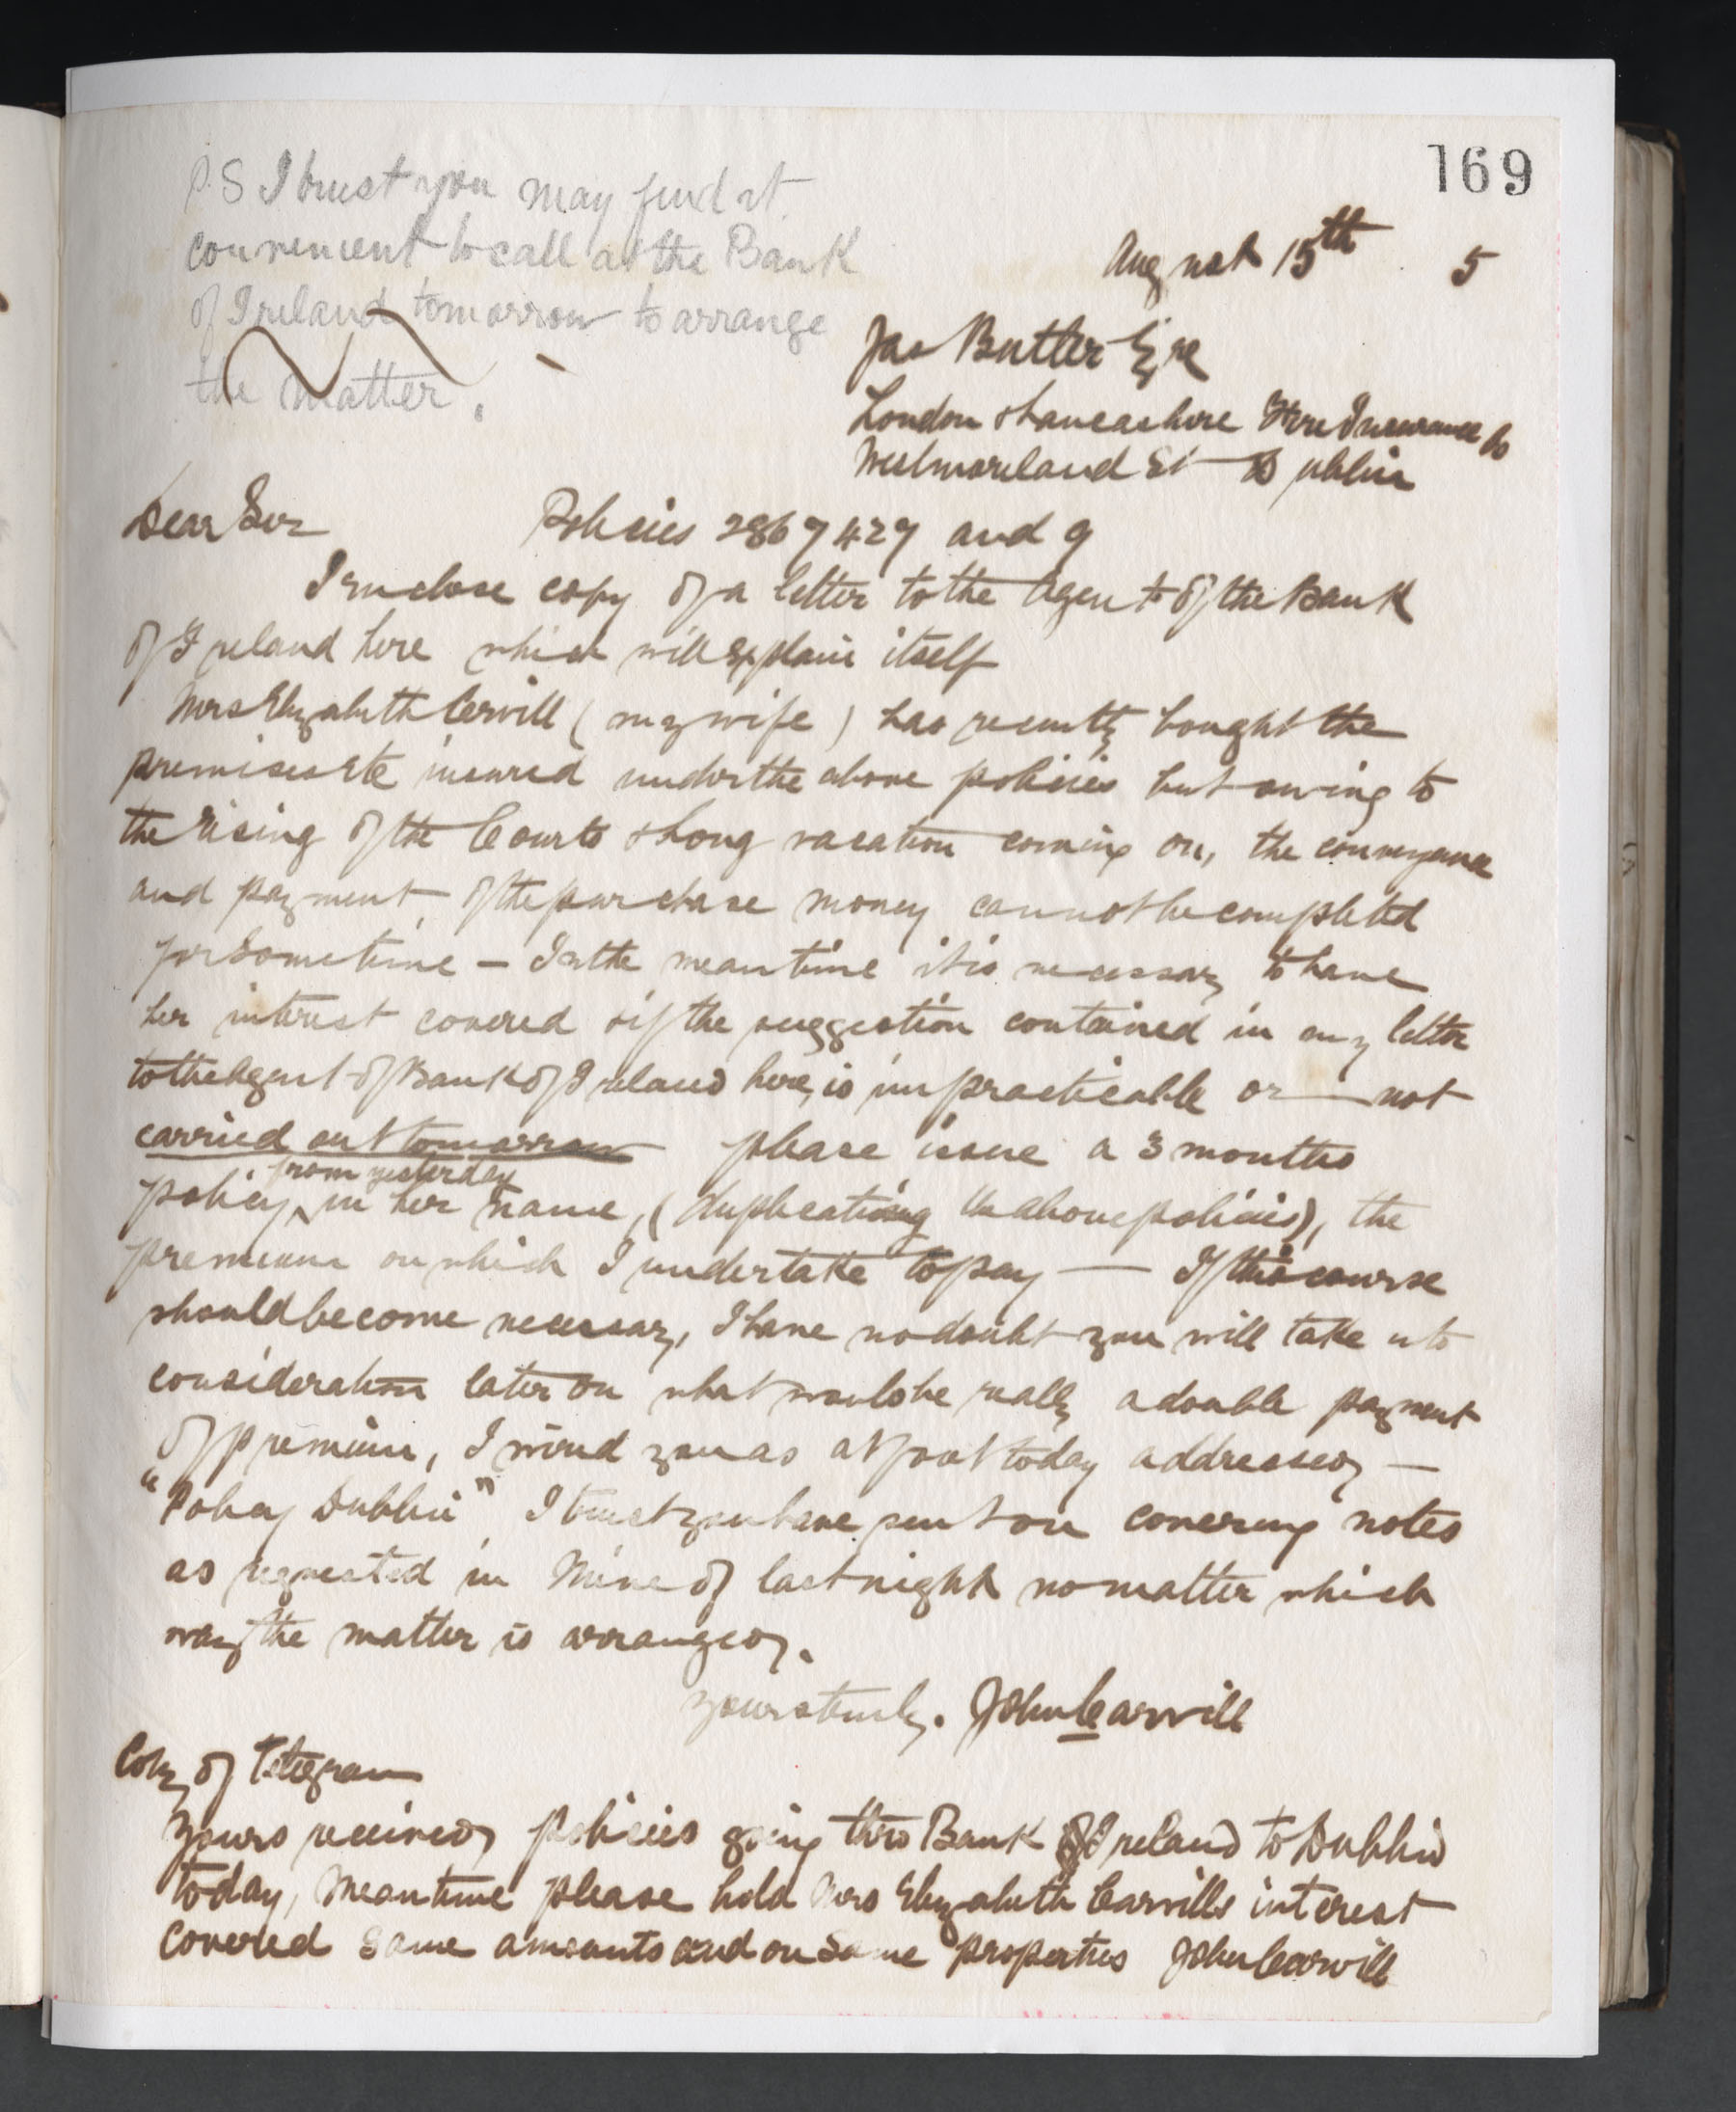 169
P.S I trust you may find it
convenient to call at the Bank
of Ireland tomorrow to arrange
the matter.
August 15th 5
Jas Butler Esqre
London & Lancashire Fire Insurance Co
Westmoreland St Dublin
Dear Sir
Policies 2867427 and 9
I enclose copy of a letter to the Agent of the Bank
of Ireland here which will explain itself
Mrs Elizabeth Carvill (my wife) has recently bought the
premises etc insured under the above policies but owing to
the rising of the Courts & Long vacation coming on, the conveyance
and payment, of the purchase money cannot be completed
for sometime - In the meantime it is necessary to have
her interest covered & if the suggestion contained in my letter
to the Agent of Bank of Ireland here, is impracticable or not
carried out tomorrow please issue a 3 months
from yesterday
policy in her name, (duplicating the above policies), the
premium on which I undertake to pay — If this course
should become necessary, I have no doubt you will take into
consideration later on what would be really a double payment
of premium, I wired you as at foot today addressed —
"Policy Dublin" I trust you have sent on covering notes
as requested in mine of last night no matter which
way the matter is arranged.
Yours truly. John Carvill
Copy of Telegram
Yours received policies going thro Bank of Ireland to Dublin
today, meantime please hold Mrs Elizabeth Carvills interest
covered same amounts and on same properties John Carvill